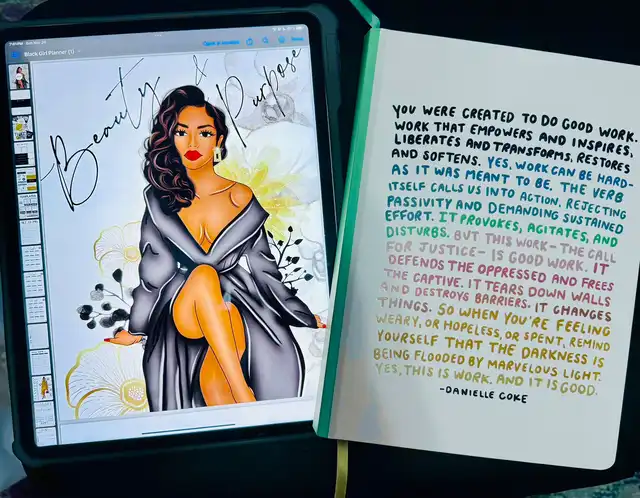 Black Girl Planner (1)
Beauty & Purpose
YOU WERE CREATED TO DO GOOD WORK.
WORK THAT EMPOWERS AND INSPIRES,
LIBERATES AND TRANSFORMS, RESTORES
AND SOFTENS. YES, WORK CAN BE HARD-
AS IT WAS MEANT TO BE. THE VERB
ITSELF CALLS US INTO ACTION, REJECTING
PASSIVITY AND DEMANDING SUSTAINED
EFFORT. IT PROVOKES, AGITATES, AND
DISTURBS. BUT THIS WORK - THE CALL
FOR JUSTICE - IS GOOD WORK. IT
DEFENDS THE OPPRESSED AND FREES
THE CAPTIVE. IT TEARS DOWN WALLS
AND DESTROYS BARRIERS. IT CHANGES
THINGS. SO WHEN YOU'RE FEELING
WEARY, OR HOPELESS, OR SPENT, REMIND
YOURSELF THAT THE DARKNESS IS
BEING FLOODED BY MARVELOUS LIGHT.
YES, THIS IS WORK. AND IT IS GOOD.
-DANIELLE COKE